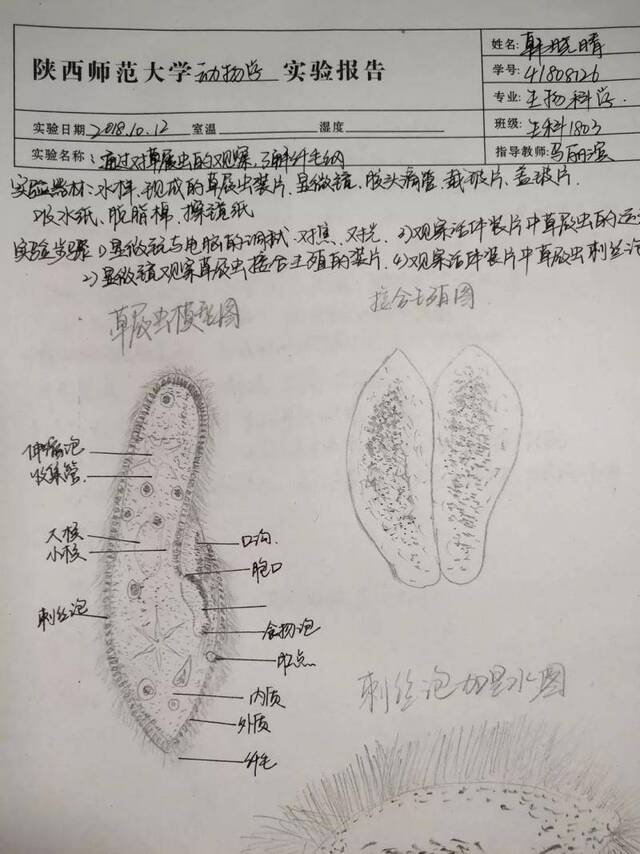 陕西师范大学动物学实验报告
姓名: 韩晓晴
学号: 41808126
专业: 生物科学
实验日期 2018.10.12 室温 湿度
班级: 生科1803
实验名称: 通过对草履虫的观察,了解纤毛纲
指导教师:
实验器材: 水样、现成的草履虫装片、显微镜、胶头滴管、载玻片、盖玻片、
吸水纸、脱脂棉、擦镜纸
实验步骤 1)显微镜与电脑的调试、对焦、对光 3)观察活体装片中草履虫的运
2)显微镜观察草履虫接合生殖的装片. 4)观察活体装片中草履虫刺丝泡
草履虫模型图
接合生殖图
伸缩泡
收集管
大核
小核
刺丝泡
口沟
胞口
食物泡
胞点
内质
外质
纤毛
刺丝泡加墨水图